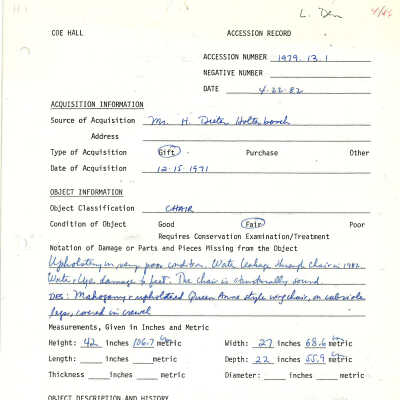 L. Den
COE HALL ACCESSION RECORD
ACCESSION NUMBER 1979.13.1
NEGATIVE NUMBER
DATE 4.22.82
ACQUISITION INFORMATION
Source of Acquisition Ms. H. Dieter Holterbosch
Address
Type of Acquisition Gift Purchase Other
Date of Acquisition 12.15.1971
OBJECT INFORMATION
Object Classification CHAIR
Condition of Object Good Fair Poor
Requires Conservation Examination/Treatment
Notation of Damage or Parts and Pieces Missing from the Object
Upholstery in very poor condition. Water leakage through chair in 1982.
Water + dye damage to feet. The chair is structurally sound.
DES: Mahogany + upholstered Queen Anne style wingchair, on cabriole
legs, covered in crewel
Measurements, Given in Inches and Metric
Height: 42 inches 106.7 cm metric Width: 27 inches 68.6 cm metric
Length: inches metric Depth: 22 inches 55.9 cm metric
Thickness inches metric Diameter: inches metric
OBJECT DESCRIPTION AND HISTORY